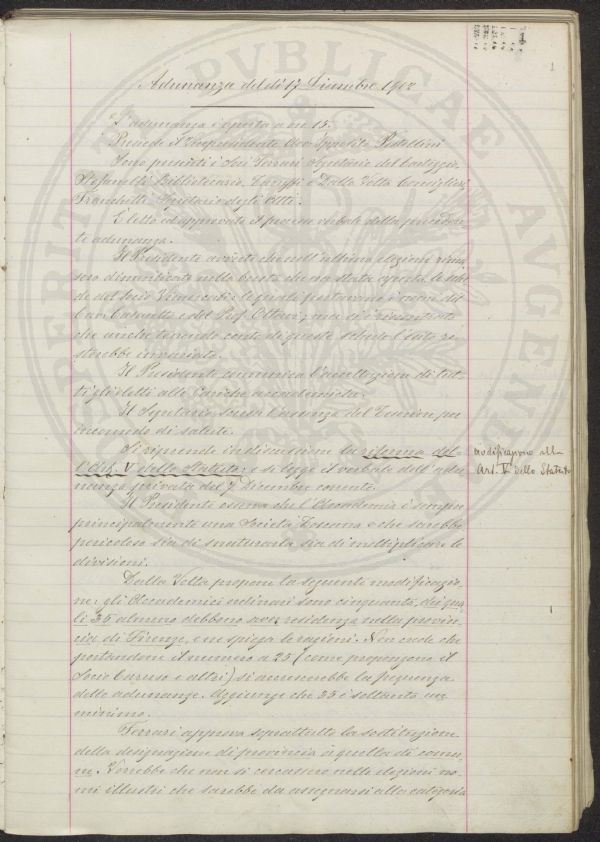 1
Adunanza del dì 17 Dicembre 1902
L'adunanza è aperta a ore 15.
Presiede il Vicepresidente Avv. Ippolito Pestellini
Sono presenti i Soci Ferrari Segretario del Carteggio,
Stefanelli Bibliotecario, Tanuffi e Dalla Volta Consiglieri,
Franchetti Segretario degli Atti.
È letto ed approvato il processo verbale della preceden-
te adunanza.
Il Presidente avverte che nell'ultima elezione rima-
sero dimenticate nella busta che era stata aperta le sche-
de del Socio
che anche tenendo conto di queste schede l'esito re-
sterebbe invariato.
Il Presidente comunica l'accettazione di tut-
ti gli eletti alle Cariche accademiche.
Il Segretario scusa l'assenza del per
incomodo di salute.
Si riprende in discussione la riforma del-
l'Art. V dello Statuto: e si legge il verbale dell'adu-
nanza privata del 7 Dicembre corrente.
modificazione all'
Art. V dello Statuto
Il Presidente osserva che l'Accademia è sempre
principalmente una Società Toscana e che sarebbe
pericoloso sia di snaturarla sia di moltiplicare le
divisioni.
Dalla Volta propone la seguente modificazio-
ne: gli Accademici ordinari sono cinquanta, dei qua-
li 35 almeno debbono aver residenza nella provin-
cia di Firenze, e ne spiega le ragioni. Non crede che
portandone il numero a 25 (come propongono il
Socio Caruso e altri) si accrescerebbe la frequenza
delle adunanze. Aggiunge che 35 è soltanto un
minimo.
Ferrari approva soprattutto la sostituzione
della designazione di provincia a quella di comu-
ne. Vorrebbe che non si cercassero nelle elezioni no-
mi illustri che sarebbe da assegnarsi alla categoria
PVBLICAE
PROSPERITATI
AVGENDAE